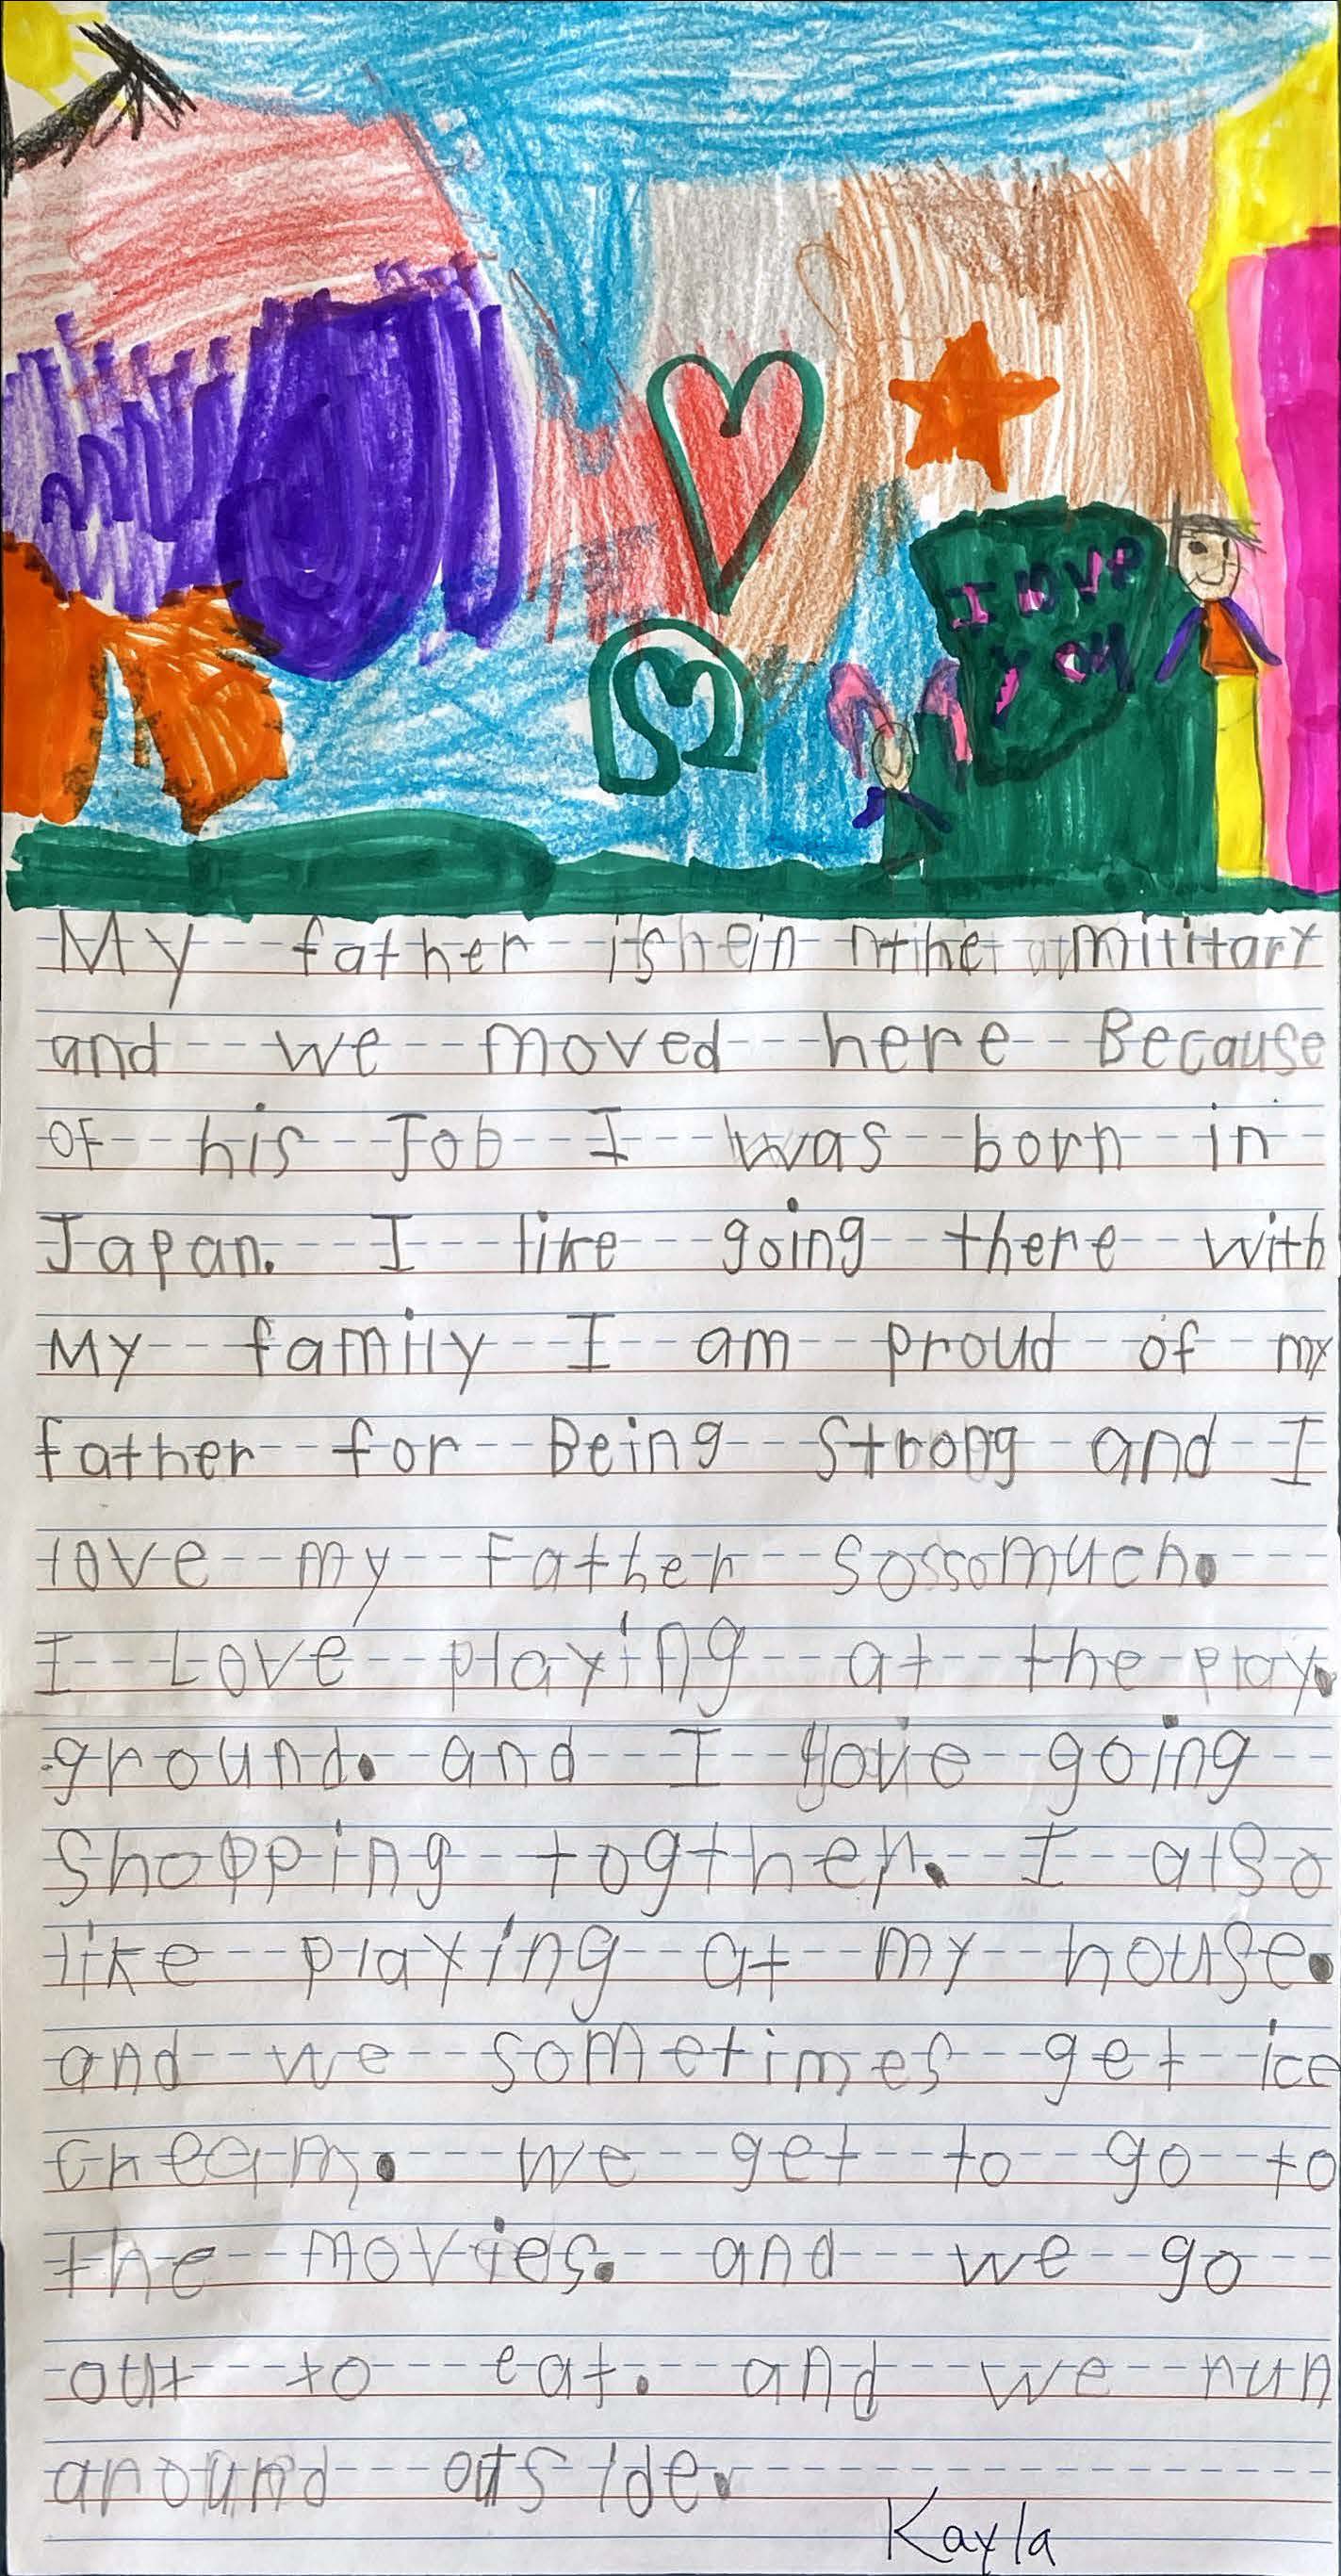 I love
you
My father is in the military
and we moved here Because
of his Job I was born in
Japan. I like going there with
My family I am proud of my
father for Being Strong and I
love my Father sossomuch.
I Love playing at the play.
ground. and I love going
Shopping togther. I also
like playing at my house.
and we sometimes get ice
cream. we get to go to
the movies. and we go
out to eat. and we run
around outside.
Kayla